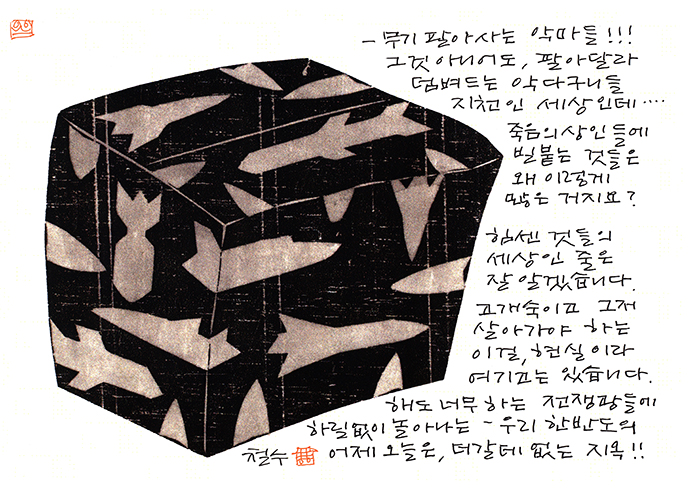 - 무기 팔아사는 악마들!!!
그것 아니어도, 팔아달라
덤벼드는 악다구니들
지천인 세상인데····
죽음의 상인들에
빌붙는 것들은
왜 이렇게
많은 거지요?
힘센 것들의
세상인 줄은
잘 알겠습니다.
고개숙이고 그저
살아가야 하는
이걸, 현실이라
여기고는 있습니다.
해도 너무 하는 전쟁광들에
하릴없이 놀아나는 - 우리 한반도의
철수 어제 오늘은, 더갈데 없는 지옥!!